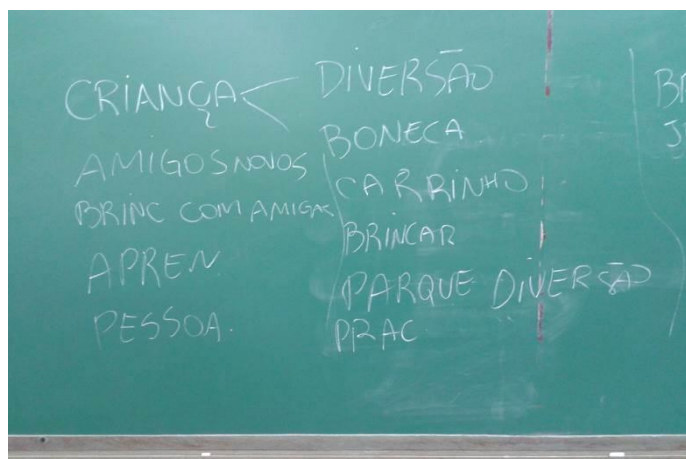 CRIANÇA
AMIGOS NOVOS
BRINC COM AMIGAS
APREN
PESSOA.
DIVERSÃO
BONECA
CARRINHO
BRINCAR
PARQUE DIVERSÃO
PRAC